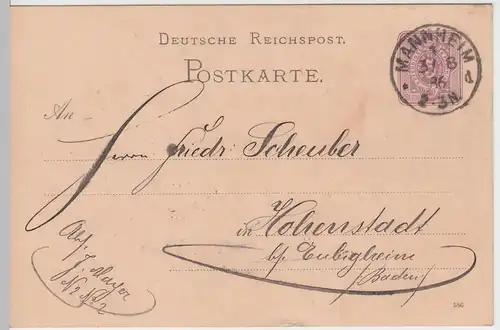 DEUTSCHE REICHSPOST.
POSTKARTE.
MANNHEIM
31 8
86
2-3N
d
An
Herrn Friedr. Scheuber
in Hohenstadt
b/ Eubigheim
(Baden)
Abs. J. Mayer
586